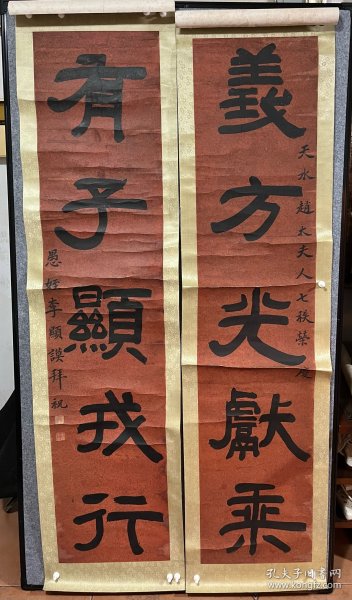 天水趙太夫人七秩榮慶
義方光獻乘
有子顯戎行
愚姪李顯謨拜祝
孔夫子旧书网
www.kongfz.com